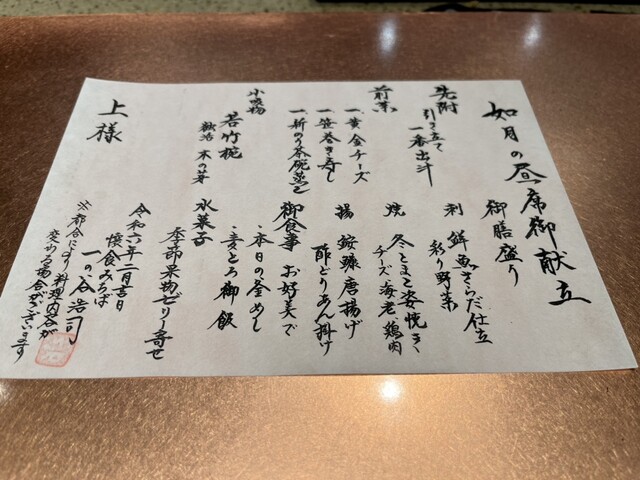 如月の昼席御献立
先附
引き立て
一番出汁
前菜
一、黄金チーズ
一、笹巻き寿し
一、新のり茶碗蒸し
小吸物
若竹椀
木の芽
御膳盛り
刺 鮮魚さらだ仕立
彩り野菜
焼 冬とまと姿焼き
チーズ 海老、鶏肉
揚 鮟鱇唐揚げ
酢どりあん掛け
御食事 お好みで
・本日の釜めし
・麦とろ御飯
水菓子
季節果物ゼリー寄せ
令和六年二月吉日
懐食みちば
一の谷浩司
※都合により料理内容が
変わる場合がございます
上様